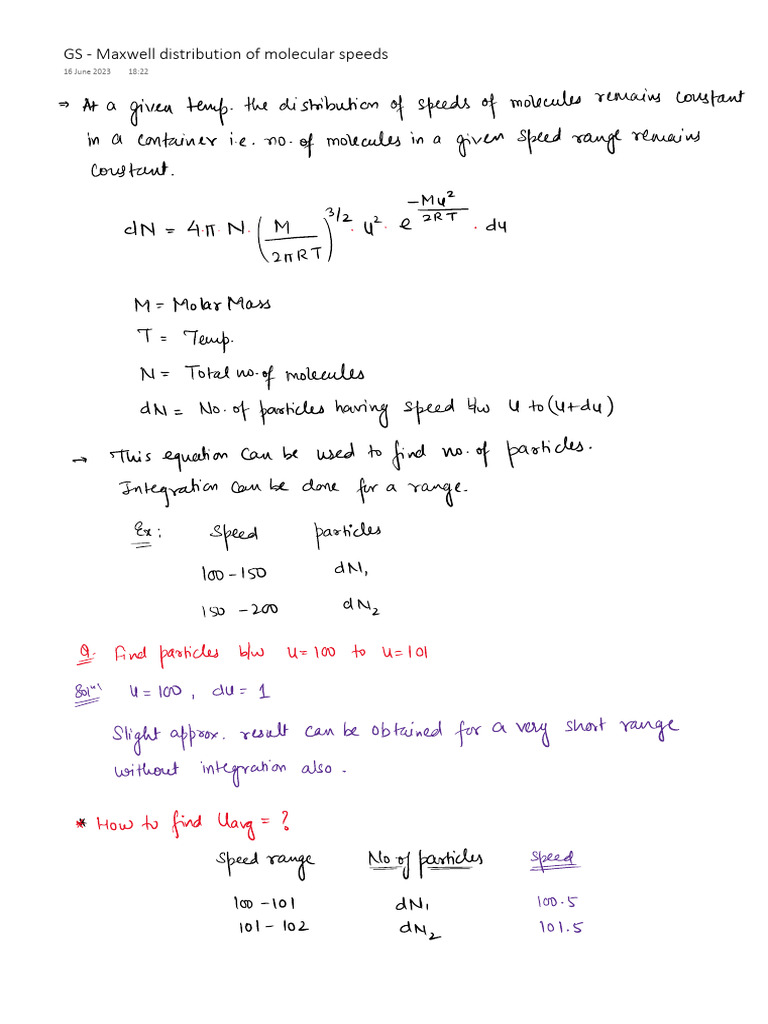 GS - Maxwell distribution of molecular speeds
16 June 2023 18:22
⇒ At a given temp. the distribution of speeds of molecules remains constant
in a container i.e. no. of molecules in a given speed range remains
constant.
dN = 4·π·N·(M/2πRT)^3/2 · u² · e^(-Mu²/2RT) · du
M = Molar Mass
T = Temp.
N = Total no. of molecules
dN = No. of particles having speed b/w u to (u+du)
→ This equation can be used to find no. of particles.
Integration can be done for a range.
Ex: Speed particles
100-150 dN₁
150-200 dN₂
Q. Find particles b/w u=100 to u=101
Solⁿ) u=100, du=1
Slight approx. result can be obtained for a very short range
without integration also.
* How to find Uavg = ?
Speed range No of particles Speed
100-101 dN₁ 100.5
101-102 dN₂ 101.5